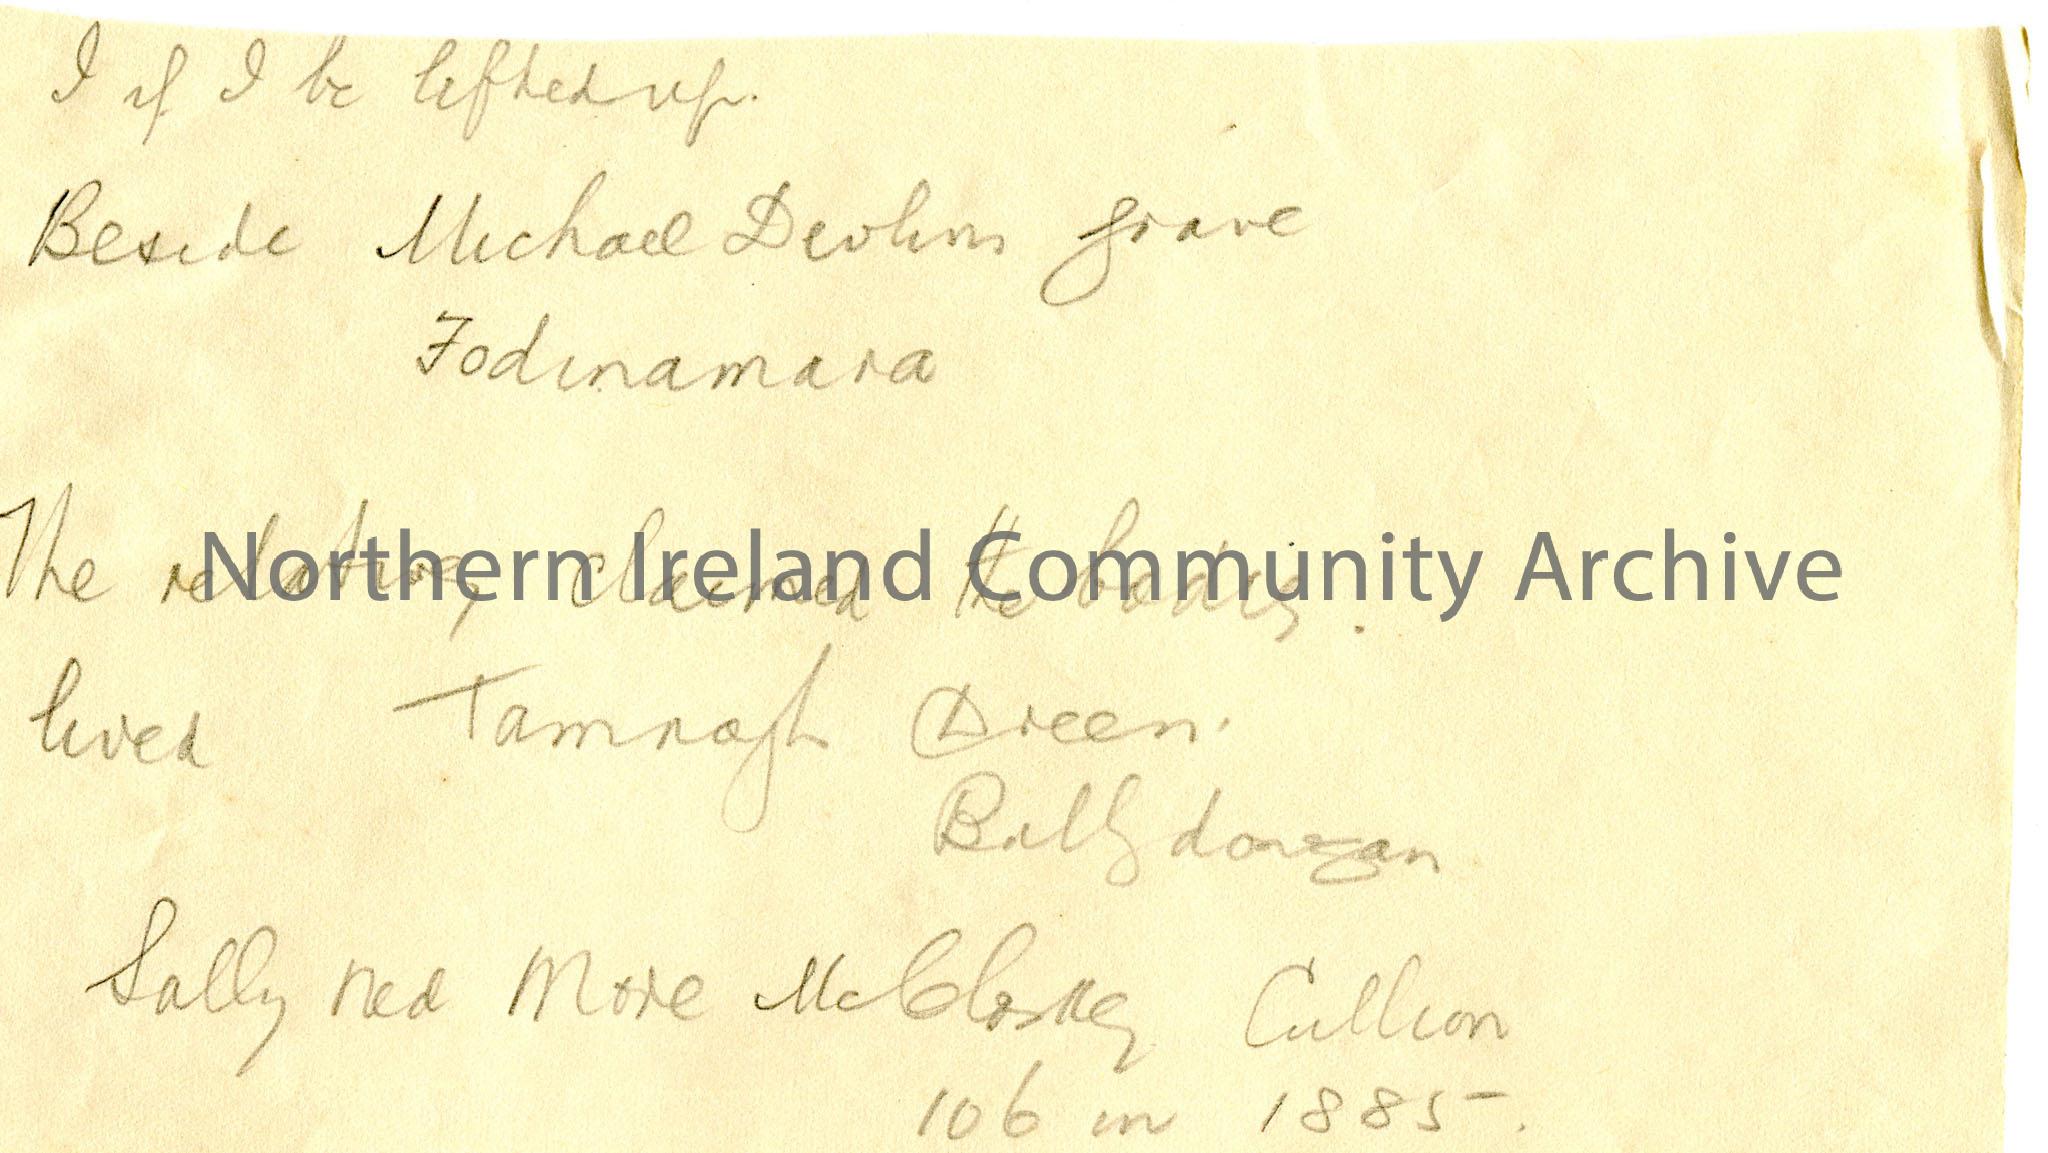 I if I be lifted up.
Beside Michael Devlins grave
Fodinamara
The relatives claimed the bodies.
Northern Ireland Community Archive
lived Tamnagh Dreen.
Ballydonegan
Sally Ned More McCloskey Cullion
106 in 1885.